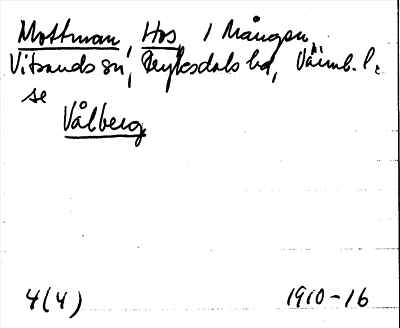 Mottman, Hos, i Mången,
Vitsands sn, Fryksdals hd, Värml. l.
se
Vålberg
4(4) 1910-16